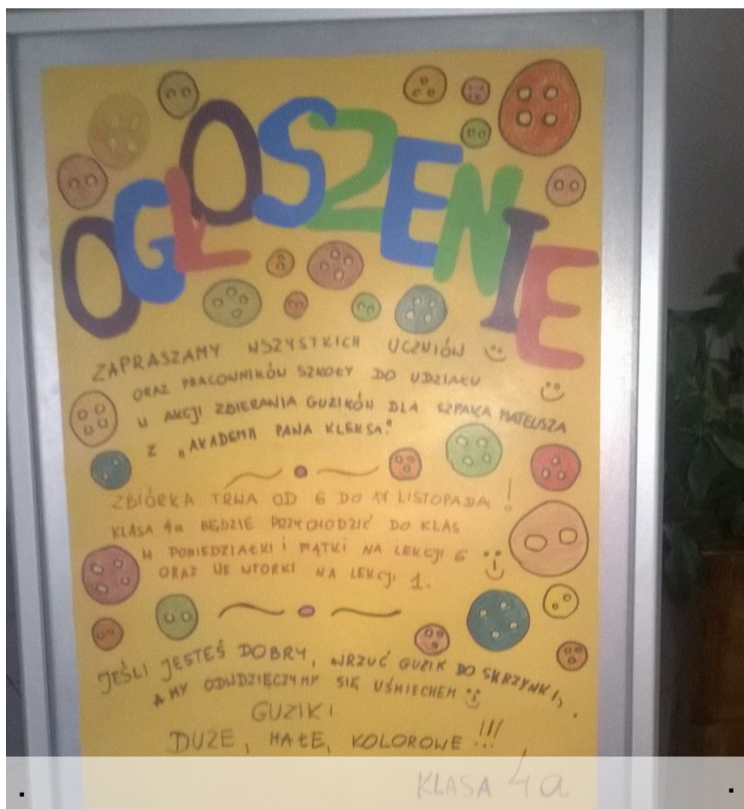 OGŁOSZENIE
ZAPRASZAMY WSZYSTKICH UCZNIÓW
ORAZ PRACOWNIKÓW SZKOŁY DO UDZIAŁU
W AKCJI ZBIERANIA GUZIKÓW DLA SZPAKA MATEUSZA
Z „AKADEMII PANA KLEKSA."
ZBIÓRKA TRWA OD 6 DO 17 LISTOPADA !
KLASA 4a BĘDZIE PRZYCHODZIĆ DO KLAS
W PONIEDZIAŁKI i PIĄTKI NA LEKCJI 6
ORAZ WE WTORKI NA LEKCJI 1.
JEŚLI JESTEŚ DOBRY, WRZUĆ GUZIK DO SKRZYNKI,
A MY ODWDZIĘCZYMY SIĘ UŚMIECHEM
GUZIKI
DUŻE, MAŁE, KOLOROWE !!!
KLASA 4a